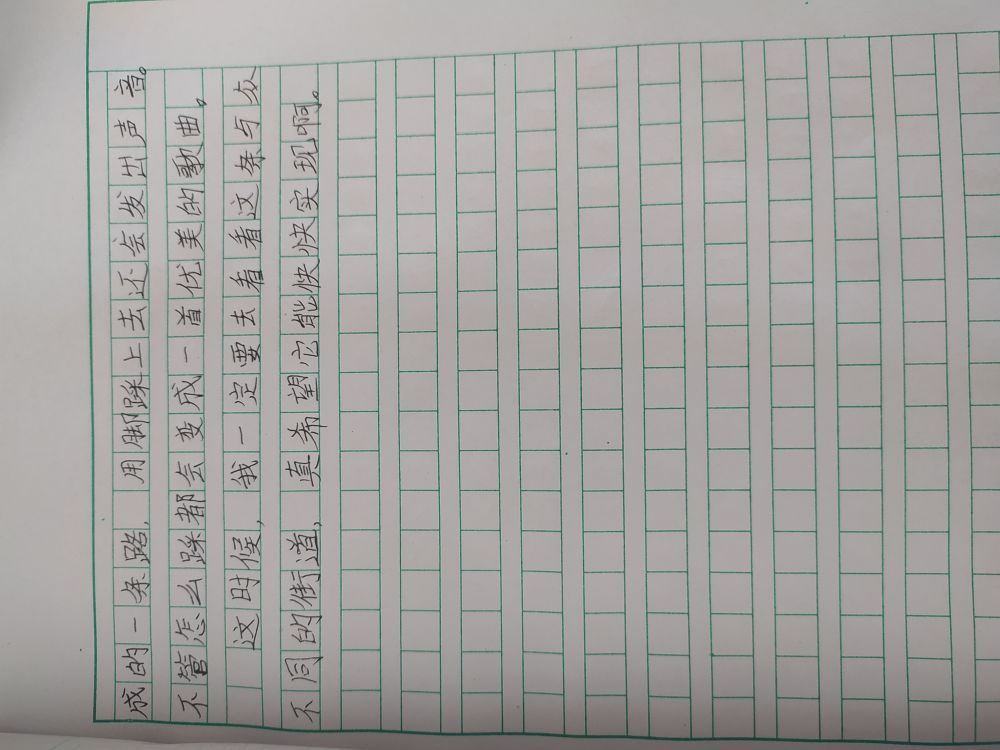 成的一条路，用脚踩上去还会发出声音。
不管怎么踩都会变成一首优美的歌曲。
这时候，我一定要去看看这条与众
不同的街道，真希望它能快快实现啊。